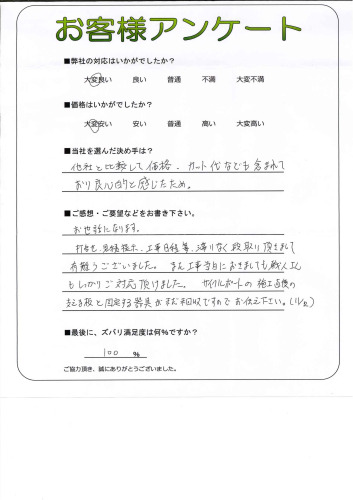 お客様アンケート
■弊社の対応はいかがでしたか？
大変良い 良い 普通 不満 大変不満
■価格はいかがでしたか？
大変安い 安い 普通 高い 大変高い
■当社を選んだ決め手は？
他社と比較して価格、カット代なども含まれて
おり良心的と感じたため。
■ご感想・ご要望などをお書き下さい。
お世話になります。
打合せ、見積提示、工事日程等、滞りなく段取り頂きまして
有難うございました。また工事当日におきましても職人さん
もしっかりご対応頂けました。サイクルポートの施工後の
支える板と固定する器具がまだ未回収ですのでお伝え下さい。
■最後に、ズバリ満足度は何%ですか？
100 %
ご協力頂き、誠にありがとうございました。